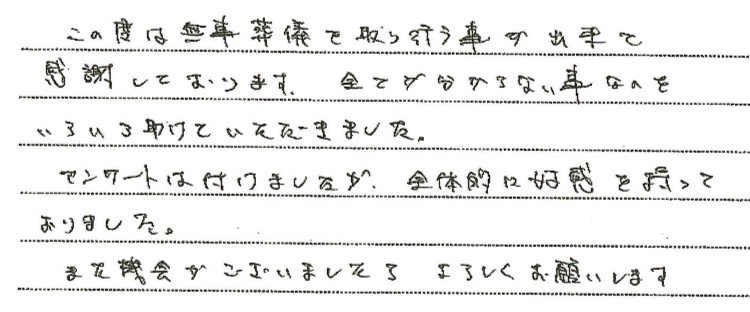 この度は無事葬儀で取り行う事が出来て
感謝しております。全てが分からない事なのを
いろいろ助けていただきました。
アンケートは付けましたが、全体的に好感を持って
おりました。
また機会がございましたら よろしくお願いします